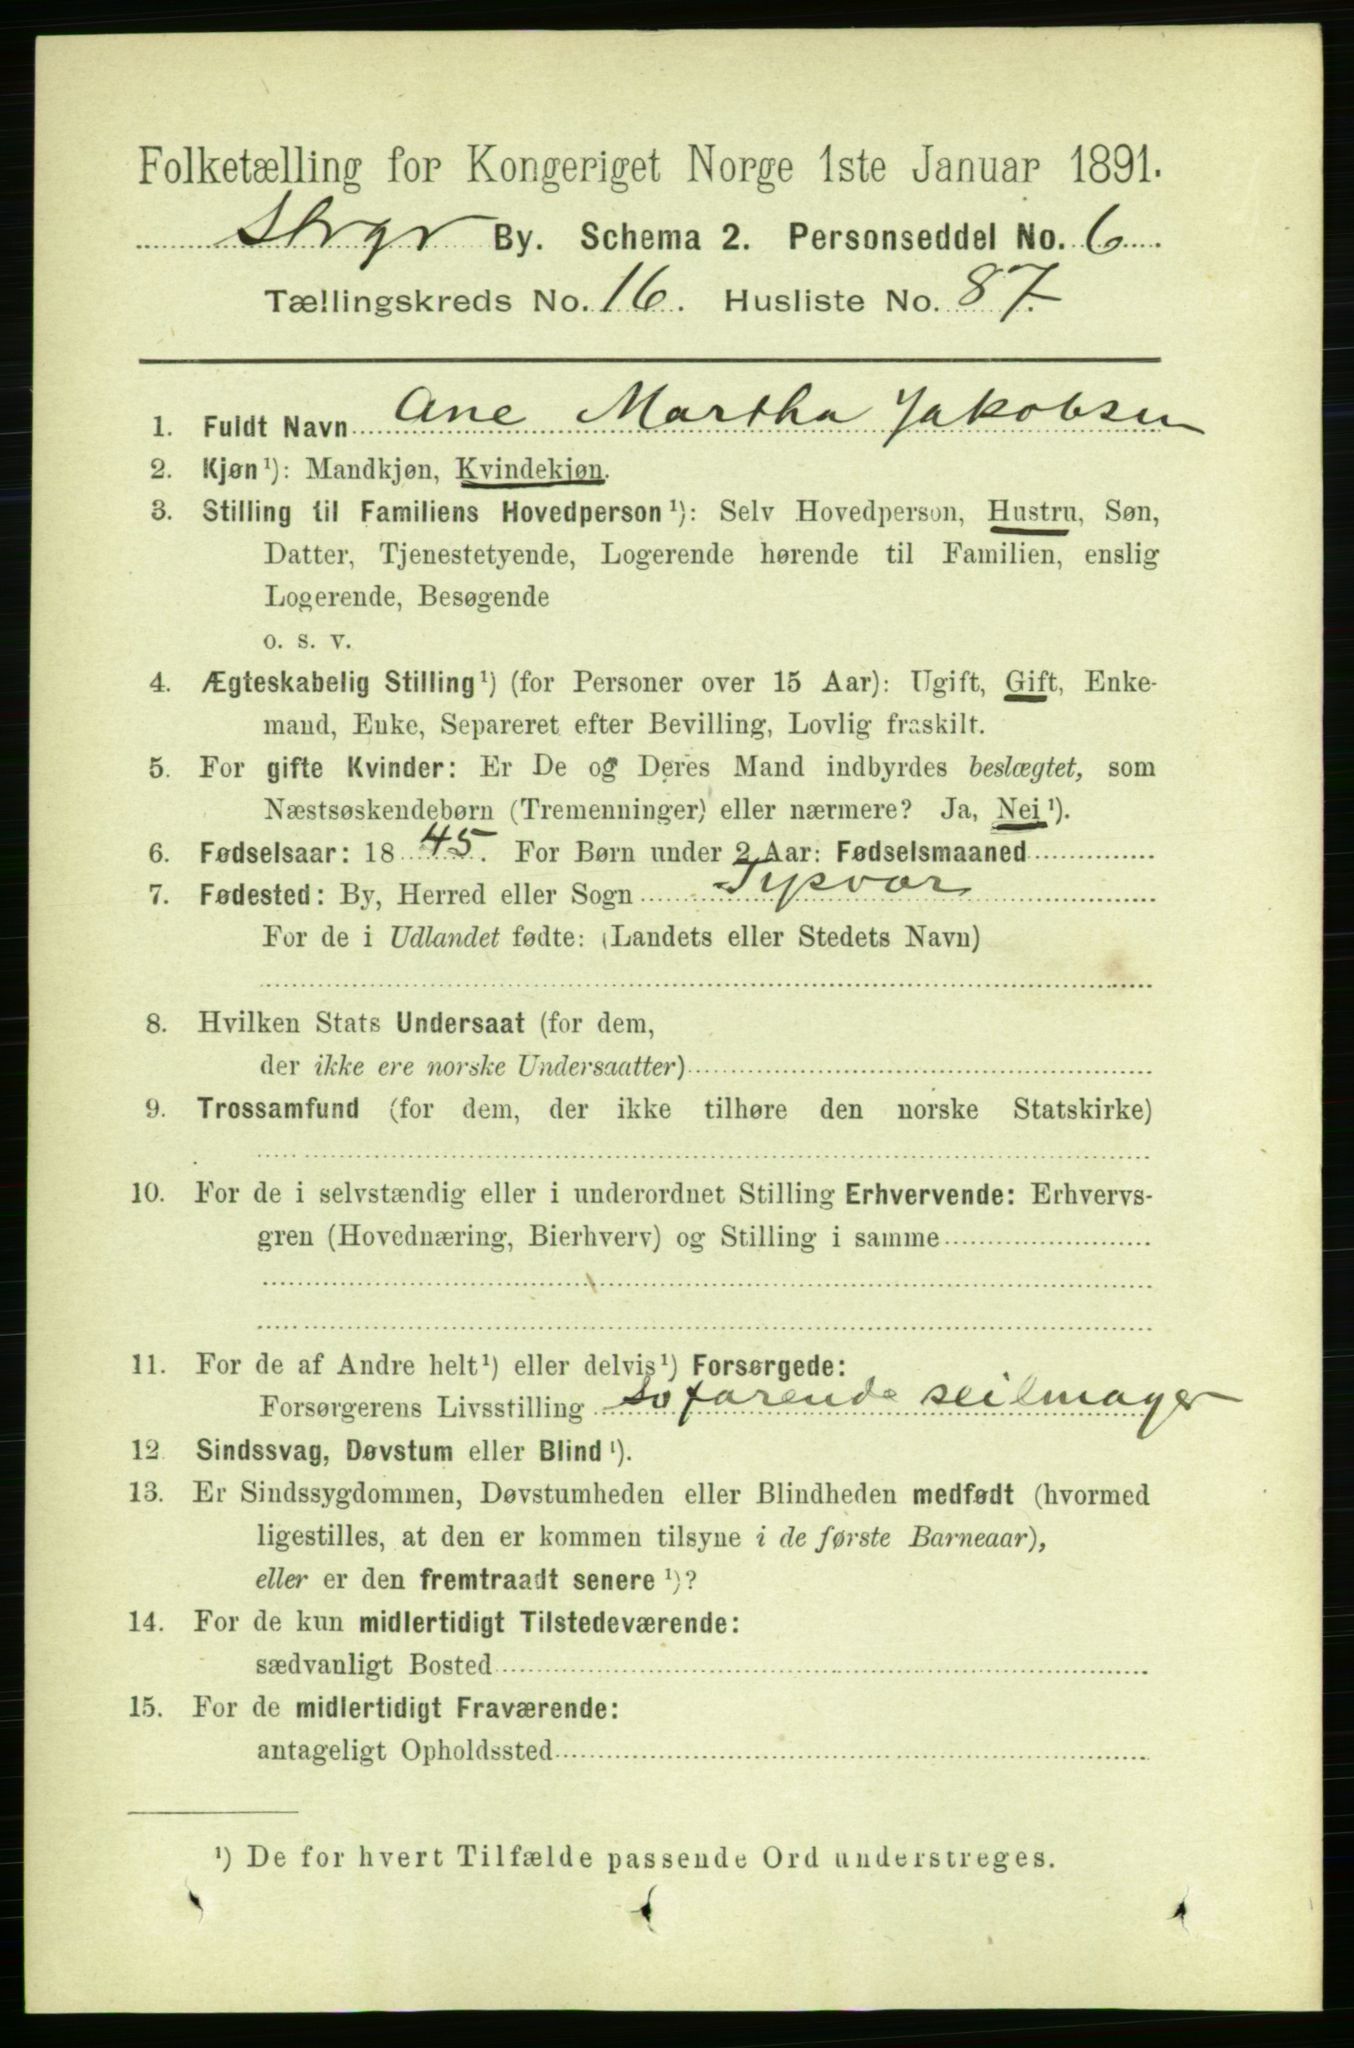 Folketælling for Kongeriget Norge 1ste Januar 1891.
Stvgr By. Schema 2. Personseddel No. 6
Tællingskreds No. 16. Husliste No. 87.
1. Fuldt Navn Ane Martha Jakobsen
2. Kjøn¹): Mandkjøn, Kvindekjøn.
3. Stilling til Familiens Hovedperson¹): Selv Hovedperson, Hustru, Søn,
Datter, Tjenestetyende, Logerende hørende til Familien, enslig
Logerende, Besøgende
o. s. v.
4. Ægteskabelig Stilling¹) (for Personer over 15 Aar): Ugift, Gift, Enke-
mand, Enke, Separeret efter Bevilling, Lovlig fraskilt.
5. For gifte Kvinder: Er De og Deres Mand indbyrdes beslægtet, som
Næstsøskendebørn (Tremenninger) eller nærmere? Ja, Nei¹).
6. Fødselsaar: 1845. For Børn under 2 Aar: Fødselsmaaned
7. Fødested: By, Herred eller Sogn Tysvær
For de i Udlandet fødte: (Landets eller Stedets Navn)
8. Hvilken Stats Undersaat (for dem,
der ikke ere norske Undersaatter)
9. Trossamfund (for dem, der ikke tilhøre den norske Statskirke)
10. For de i selvstændig eller i underordnet Stilling Erhvervende: Erhvervs-
gren (Hovednæring, Bierhverv) og Stilling i samme
11. For de af Andre helt¹) eller delvis¹) Forsørgede:
Forsørgerens Livsstilling Søfarende seilmager
12 Sindssvag, Døvstum eller Blind¹).
13. Er Sindssygdommen, Døvstumheden eller Blindheden medfødt (hvormed
ligestilles, at den er kommen tilsyne i de første Barneaar),
eller er den fremtraadt senere¹)?
14. For de kun midlertidigt Tilstedeværende:
sædvanligt Bosted
15. For de midlertidigt Fraværende:
antageligt Opholdssted
¹) De for hvert Tilfælde passende Ord understreges.